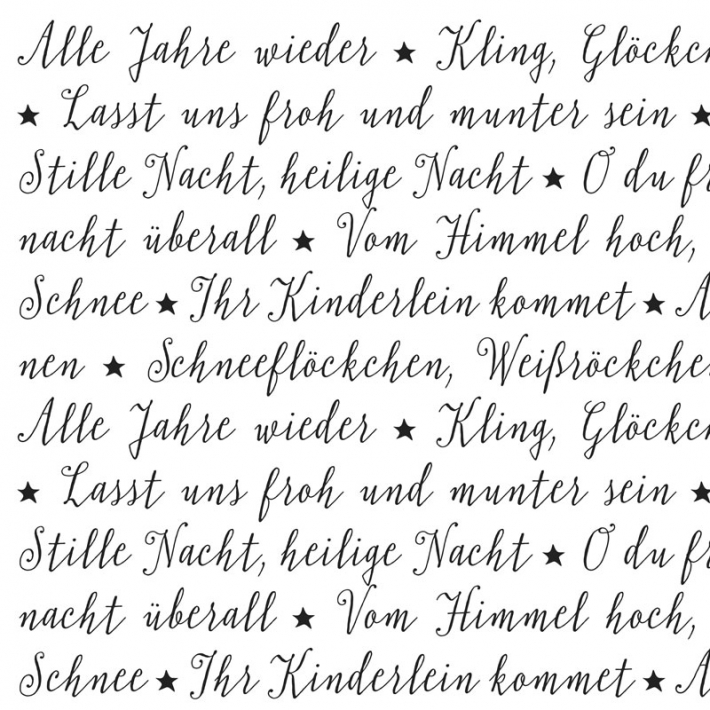 Alle Jahre wieder ★ Kling, Glöckch
★ Lasst uns froh und munter sein ★
Stille Nacht, heilige Nacht ★ O du fr
nacht überall ★ Vom Himmel hoch,
Schnee ★ Ihr Kinderlein kommet ★ A
nen ★ Schneeflöckchen, Weißröckche
Alle Jahre wieder ★ Kling, Glöckch
★ Lasst uns froh und munter sein ★
Stille Nacht, heilige Nacht ★ O du fr
nacht überall ★ Vom Himmel hoch,
Schnee ★ Ihr Kinderlein kommet ★ A